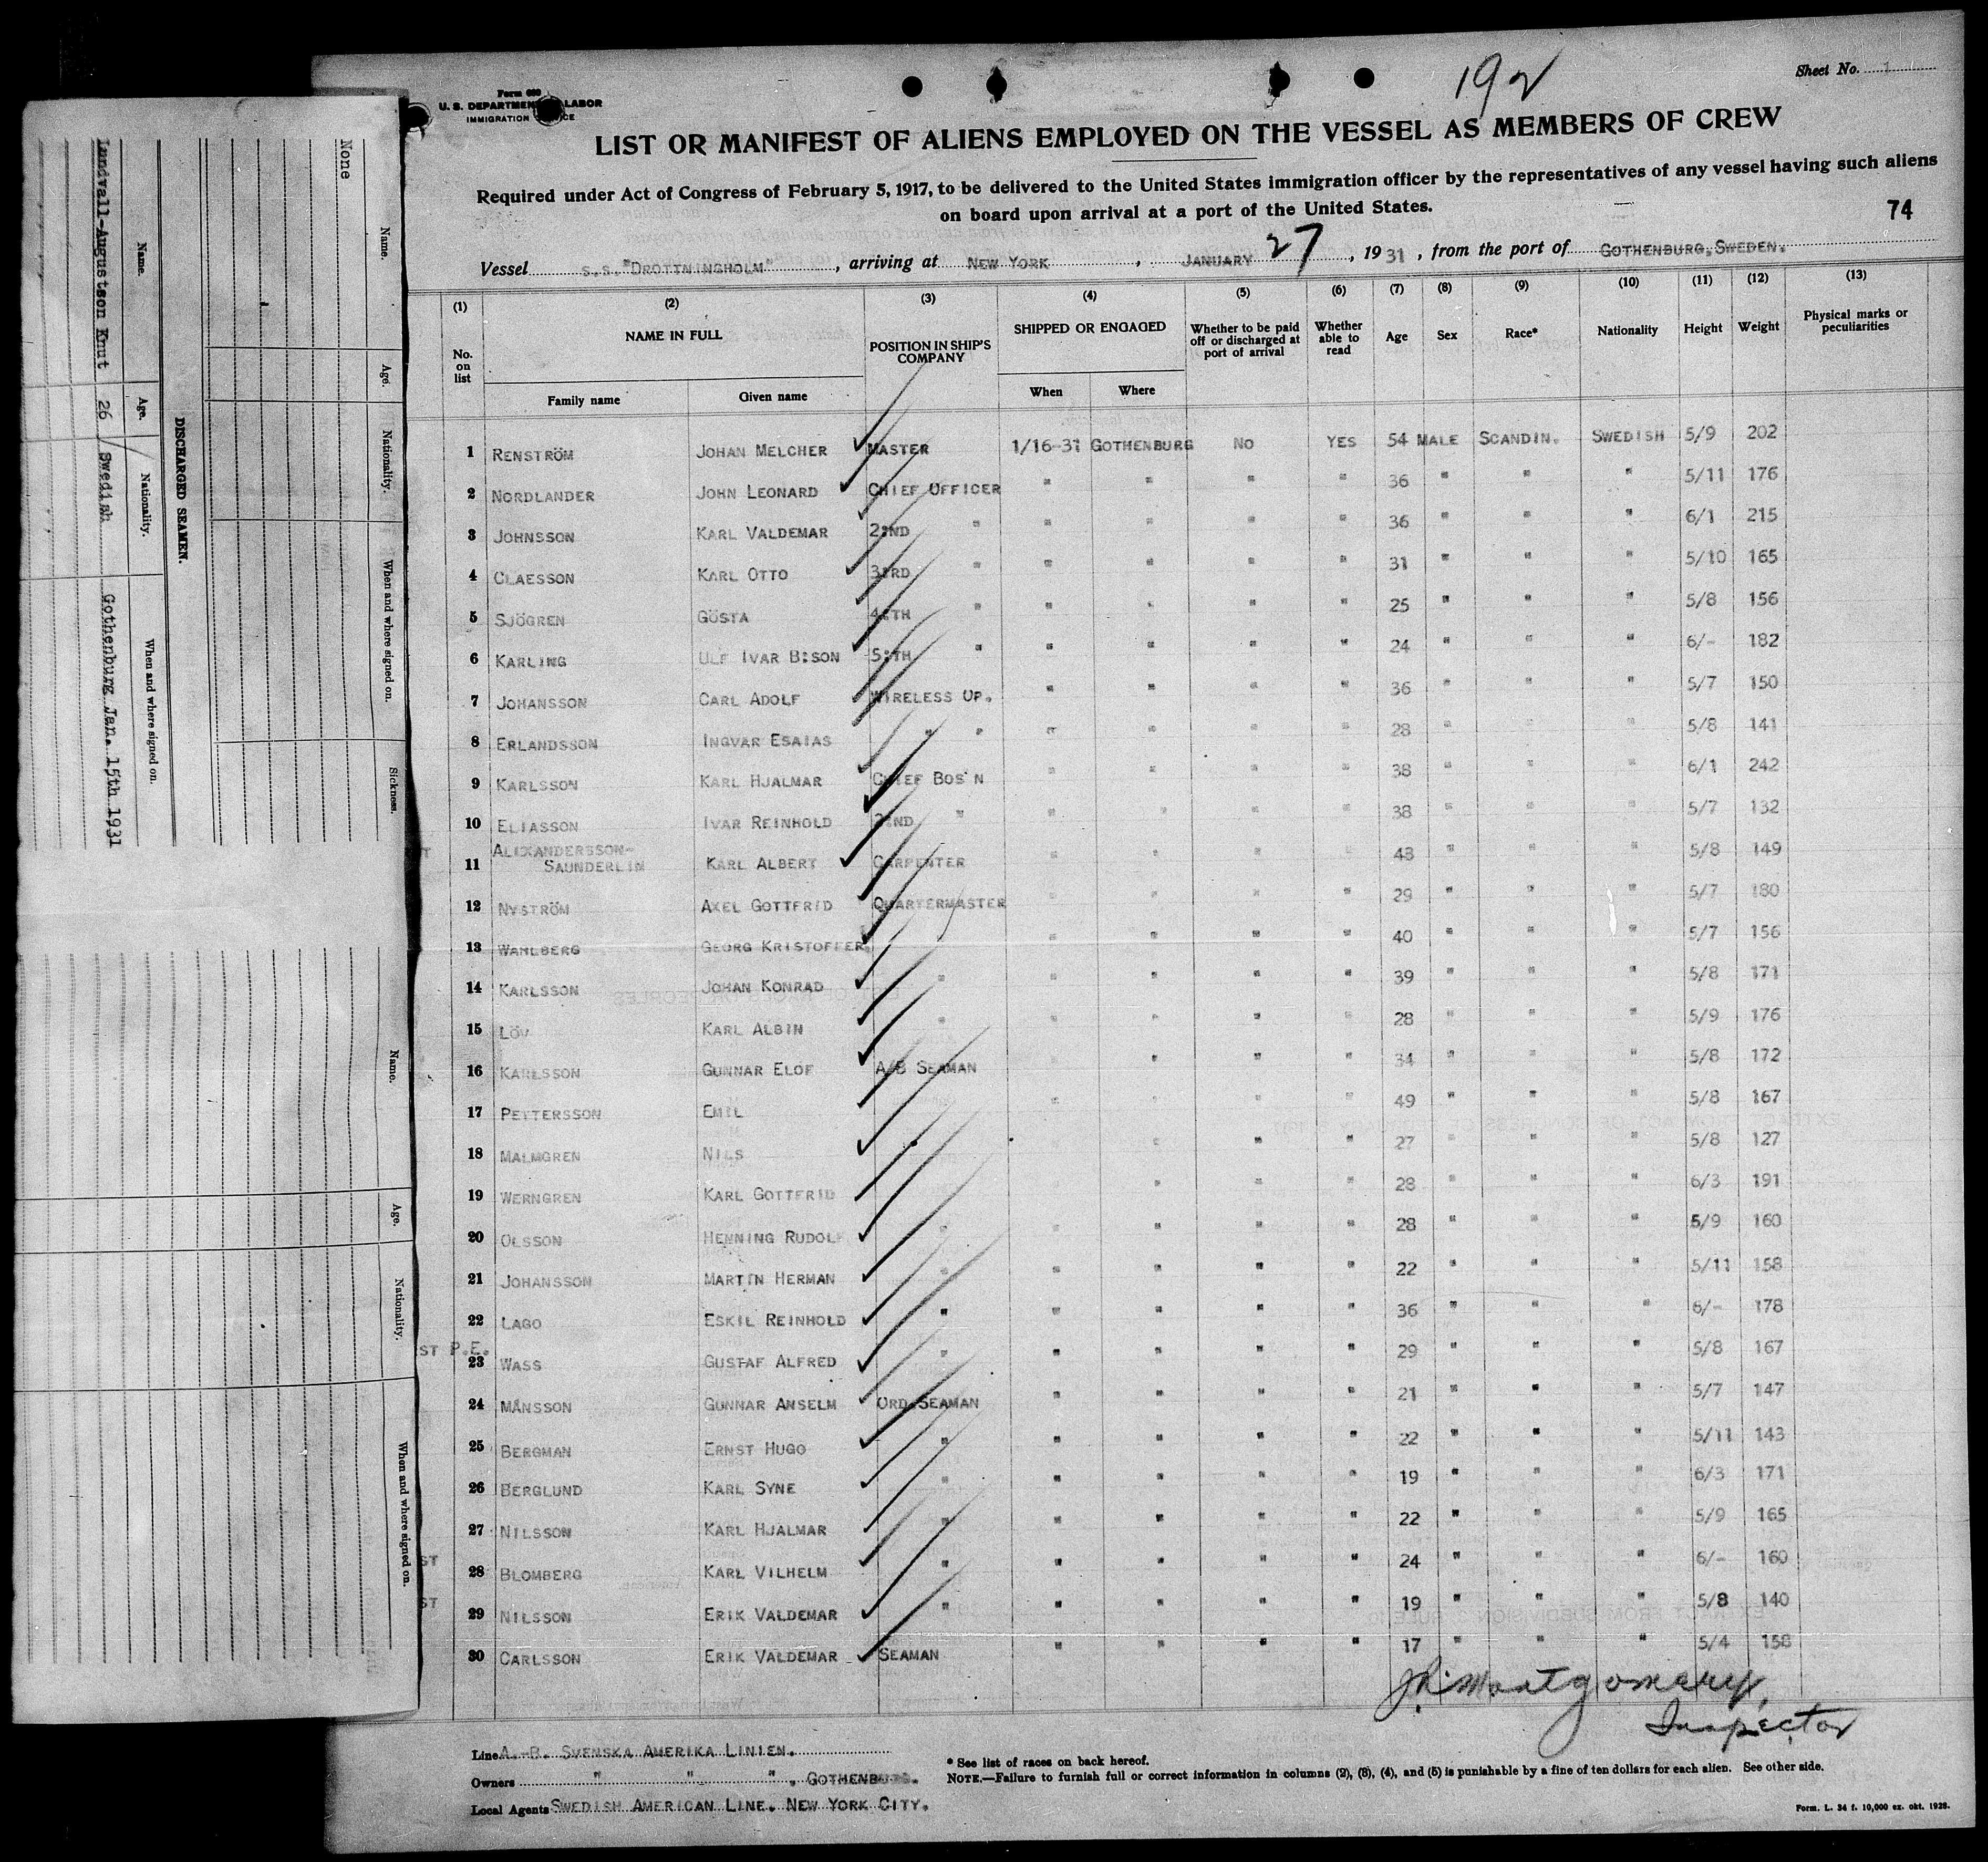 192
Sheet No. 1
Form 680
U. S. DEPARTMENT LABOR
IMMIGRATION
LIST OR MANIFEST OF ALIENS EMPLOYED ON THE VESSEL AS MEMBERS OF CREW
Required under Act of Congress of February 5, 1917, to be delivered to the United States immigration officer by the representatives of any vessel having such aliens
on board upon arrival at a port of the United States.
74
Vessel S.S."DROTTNINGHOLM", arriving at NEW YORK, JANUARY 27, 1931, from the port of GOTHENBURG, SWEDEN.
(1) (2) (3) (4) (5) (6) (7) (8) (9) (10) (11) (12) (13)
No. on list NAME IN FULL POSITION IN SHIP'S COMPANY SHIPPED OR ENGAGED Whether to be paid off or discharged at port of arrival Whether able to read Age Sex Race* Nationality Height Weight Physical marks or peculiarities
Family name Given name When Where
1 RENSTRÖM JOHAN MELCHER MASTER 1/16-31 GOTHENBURG NO YES 54 MALE SCANDIN. SWEDISH 5/9 202
2 NORDLANDER JOHN LEONARD CHIEF OFFICER " " " " 36 " " " 5/11 176
3 JOHNSSON KARL VALDEMAR 2:ND " " " " " 36 " " " 6/1 215
4 CLAESSON KARL OTTO 3:RD " " " " " 31 " " " 5/10 165
5 SJÖGREN GÖSTA 4:TH " " " " " 25 " " " 5/8 156
6 KARLING ULF IVAR B:SON 5:TH " " " " " 24 " " " 6/- 182
7 JOHANSSON CARL ADOLF WIRELESS OP. " " " " 36 " " " 5/7 150
8 ERLANDSSON INGVAR ESAIAS " " " " " " 28 " " " 5/8 141
9 KARLSSON KARL HJALMAR CHIEF BOS'N " " " " 38 " " " 6/1 242
10 ELIASSON IVAR REINHOLD 2:ND " " " " " 38 " " " 5/7 132
11 ALEXANDERSSON-
SAUNDERLIN KARL ALBERT CARPENTER " " " " 43 " " " 5/8 149
12 NYSTRÖM AXEL GOTTFRID QUARTERMASTER " " " " 29 " " " 5/7 180
13 WAHLBERG GEORG KRISTOFFER " " " " 40 " " " 5/7 156
14 KARLSSON JOHAN KONRAD " " " " " 39 " " " 5/8 171
15 LÖV KARL ALBIN " " " " " 28 " " " 5/9 176
16 KARLSSON GUNNAR ELOF A/B SEAMAN " " " " 34 " " " 5/8 172
17 PETTERSSON EMIL " " " " " 49 " " " 5/8 167
18 MALMGREN NILS " " " 27 " " " 5/8 127
19 WERNGREN KARL GOTTFRID " " " 28 " " " 6/3 191
20 OLSSON HENNING RUDOLF " " " " " 28 " " " 5/9 160
21 JOHANSSON MARTIN HERMAN " " " " " 22 " " " 5/11 158
22 LAGO ESKIL REINHOLD " " " " " 36 " " " 6/- 178
ST P.E.
23 WASS GUSTAF ALFRED " " " " " 29 " " " 5/8 167
24 MÅNSSON GUNNAR ANSELM ORD.SEAMAN " " " " 21 " " " 5/7 147
25 BERGMAN ERNST HUGO " " " " " 22 " " " 5/11 143
26 BERGLUND KARL SYNE " " " " " 19 " " " 6/3 171
27 NILSSON KARL HJALMAR " " " " " 22 " " " 5/9 165
ST
28 BLOMBERG KARL VILHELM " " " " " 24 " " " 6/- 160
ST
29 NILSSON ERIK VALDEMAR " " " " " 19 " " " 5/8 140
30 CARLSSON ERIK VALDEMAR SEAMAN " " " " 17 " " " 5/4 158
Montgomery,
Inspector
Line A.-B. SVENSKA AMERIKA LINIEN.
Owners " " ", GOTHENBURG.
Local Agents SWEDISH AMERICAN LINE. NEW YORK CITY.
* See list of races on back hereof.
NOTE.—Failure to furnish full or correct information in columns (2), (3), (4), and (5) is punishable by a fine of ten dollars for each alien. See other side.
Form. L. 34 f. 10,000 ex. okt. 1928.
Name. Age. Nationality. When and where signed on. Sickness.
None
DISCHARGED SEAMEN.
Name. Age. Nationality. When and where signed on.
Lundvall-Augustson Knut 26 / Swedish Gothenburg Jan. 15th 1931
Name. Age. Nationality. When and where signed on.